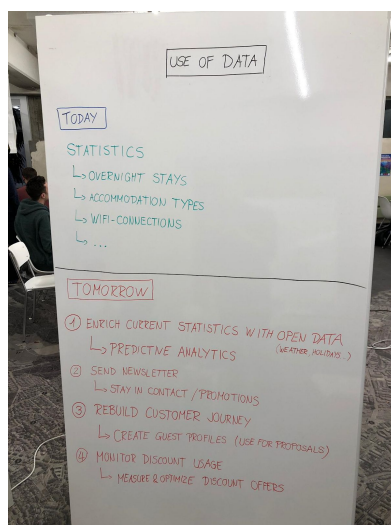 USE OF DATA
TODAY
STATISTICS
↳ OVERNIGHT STAYS
↳ ACCOMMODATION TYPES
↳ WIFI-CONNECTIONS
↳ ...
TOMORROW
① ENRICH CURRENT STATISTICS WITH OPEN DATA
(WEATHER, HOLIDAYS..)
↳ PREDICTIVE ANALYTICS
② SEND NEWSLETTER
↳ STAY IN CONTACT / PROMOTIONS
③ REBUILD CUSTOMER JOURNEY
↳ CREATE GUEST PROFILES (USE FOR PROPOSALS)
④ MONITOR DISCOUNT USAGE
↳ MEASURE & OPTIMIZE DISCOUNT OFFERS